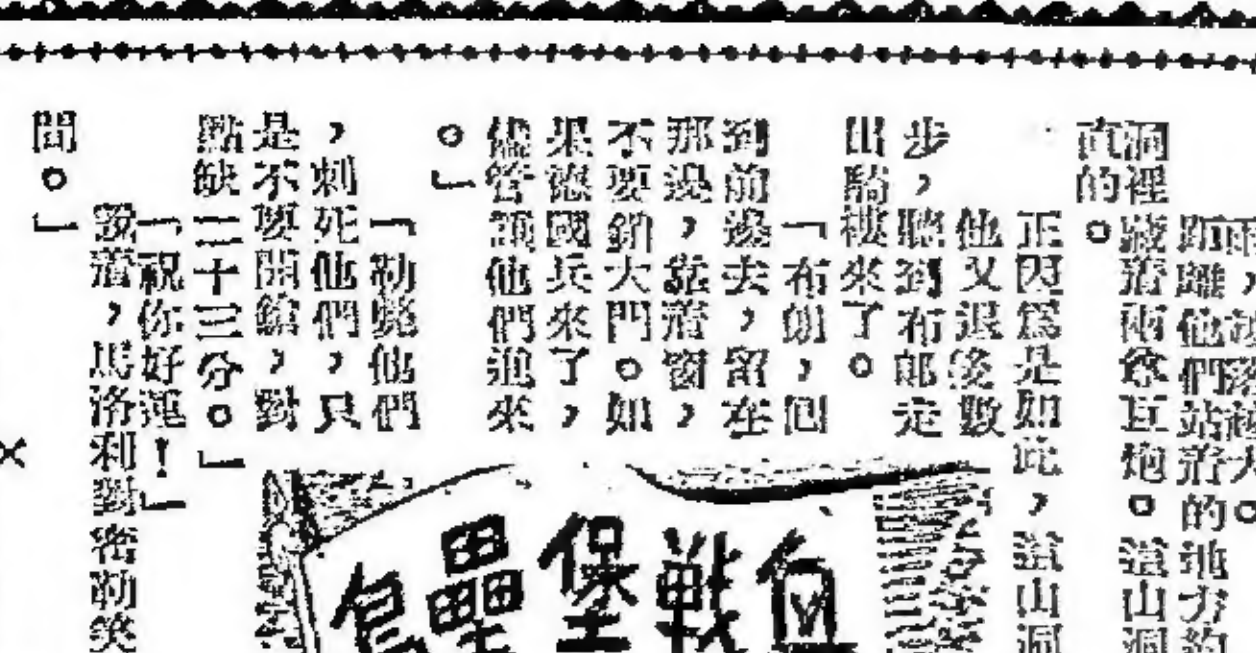 距離他們站着的地方約
洞裡藏着兩條巨炮。這山洞
直的。
正因爲是如此，這山洞
他又退後數
步，聽到布郎走
出騎樓來了。
「布朗，回
到前邊去，留在
那邊，靠着窗，
不要鎖大門。如
果德國兵來了，
儘管讓他們進來
。」
「勒斃他們
，刺死他們，只
是不要開鎗，對
點缺二十三分。」
「祝你好運！」
說着，馬洛利對密勒笑
間。」
×
血戰堡壘島